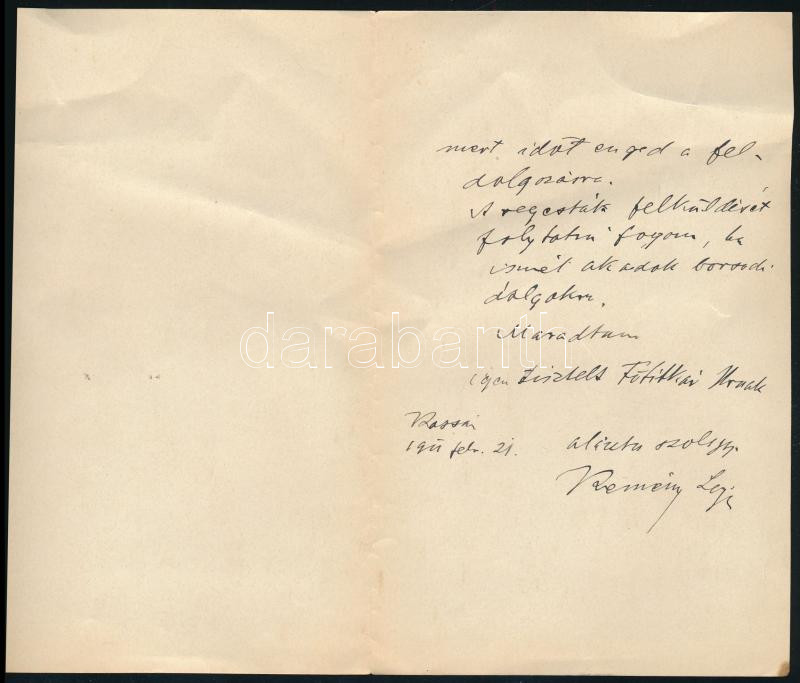 mert időt enged a fel-
dolgozásra.
A regesták felküldését
folytatni fogom, ha
ismét akadok borsodi
dolgokra.
Maradtam
darabanth
igen Tisztelt Főtitkár Urnak
Kassán
1911 febr. 21.
alázatos szolgája
Kemény Lajos